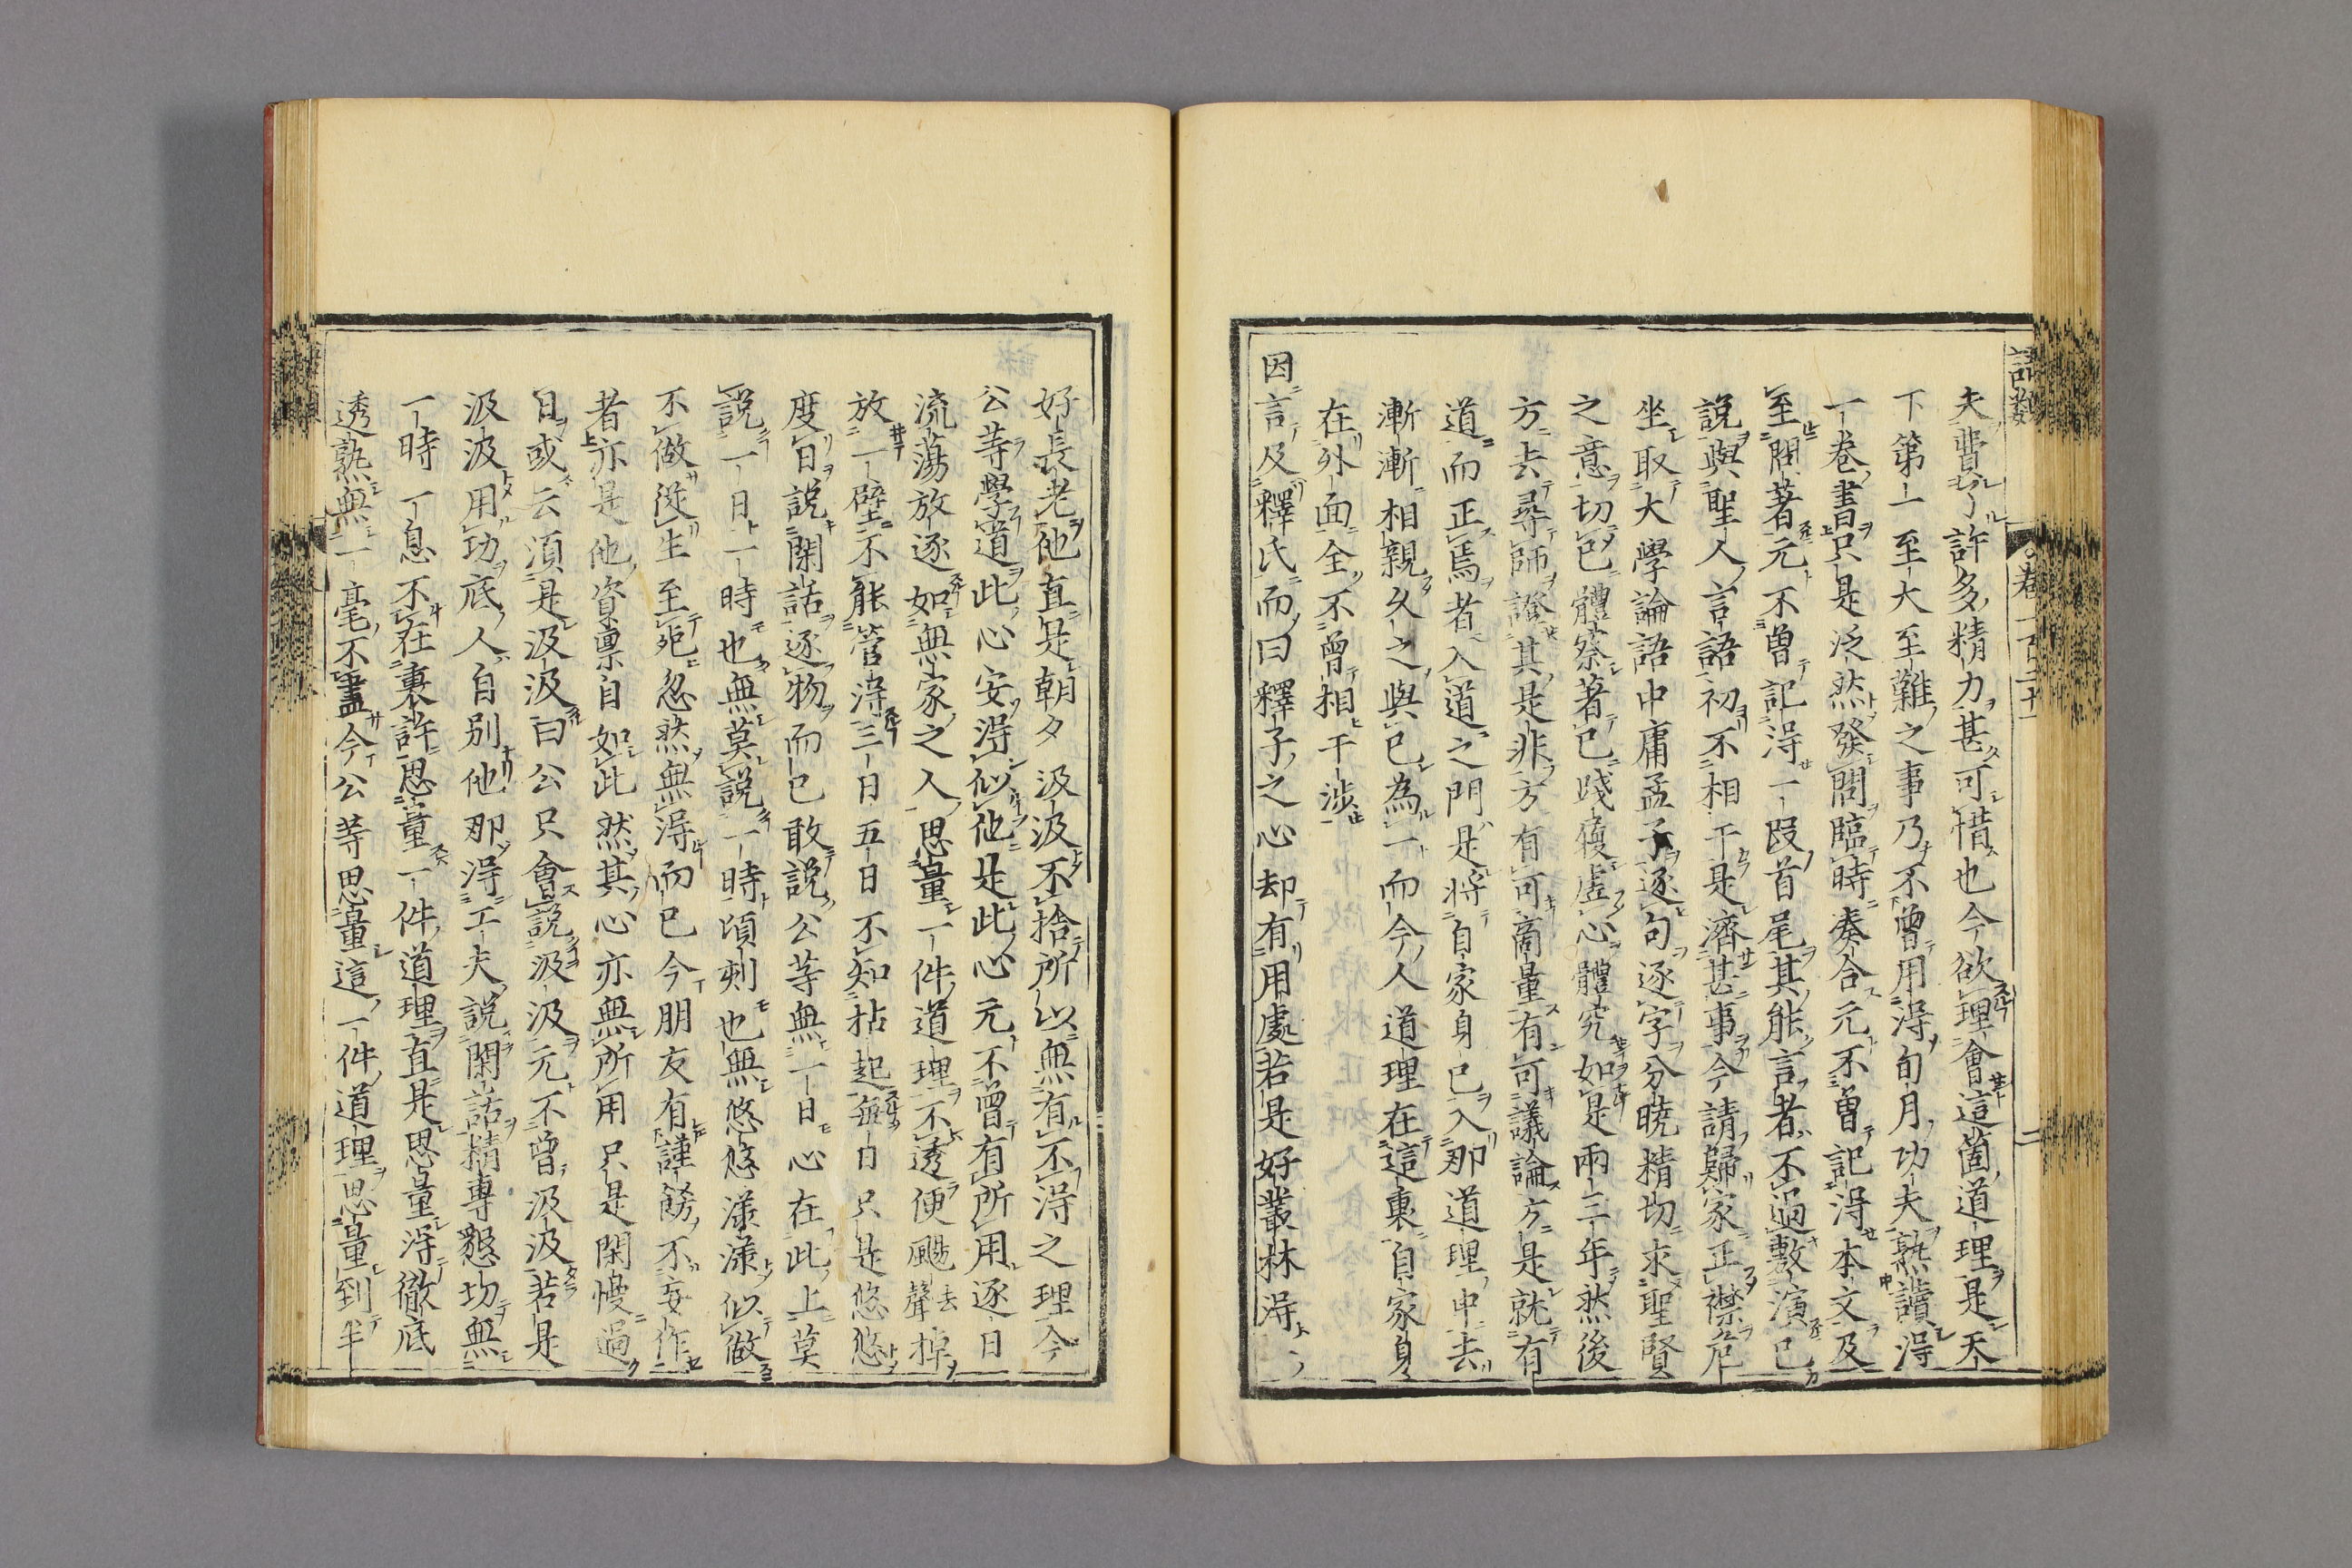 語類
卷一百二十一
二
夫費了許多精力甚可惜也今欲理會這箇道理是天
下第一至大至難之事乃不曾用得旬月功夫熟讀得
一卷書只是泛然發問臨時奏合元不曽記得本文及
至問著元不曽記得一段首尾其能言者不過敷演已
說與聖人言語初不相干是濟甚事今請歸家正襟危
坐取大學論語中庸孟子逐句逐字分曉精切求聖賢
之意切己體察著己踐履虛心體究如是兩三年然後
方去尋師證其是非方有可啇量有可議論方是就有
道而正焉者入道之門是將自家身己入那道理中去
漸漸相親久之與己為一而今人道理在這裏自家身
在外面全不曾相干涉
因言及釋氏而曰釋子之心却有用處若是好叢林得一
好長老他直是朝夕汲汲不捨所以無有不得之理今
公等學道此心安得似他是此心元不曾有所用逐日
流蕩放逐如無家之人思量一件道理不透便颺去聲掉
放一壁不能管得三日五日不知拈起每日只是悠悠
度日說閑話逐物而已敢說公等無一日心在此上莫
說一日一時也無莫說一時頃刻也無悠悠漾漾似做
不做從生至死忽然無得而已今朋友有謹飭不妄作
者亦是他資禀自如此然其心亦無所用只是閑慢過
日或云須是汲汲曰公只會說汲汲元不曾汲汲若是
汲汲用功底人自别他那得工夫說閑話精專懇切無
一時一息不在裏許思量一件道理直是思量得徹底
透熟無一毫不盡今公等思量這一件道理思量到半